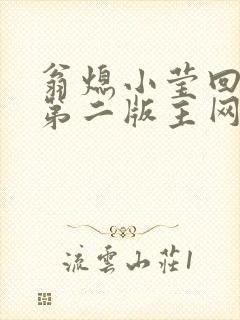 翁媳小莹回
第二版主网
流雲山莊1